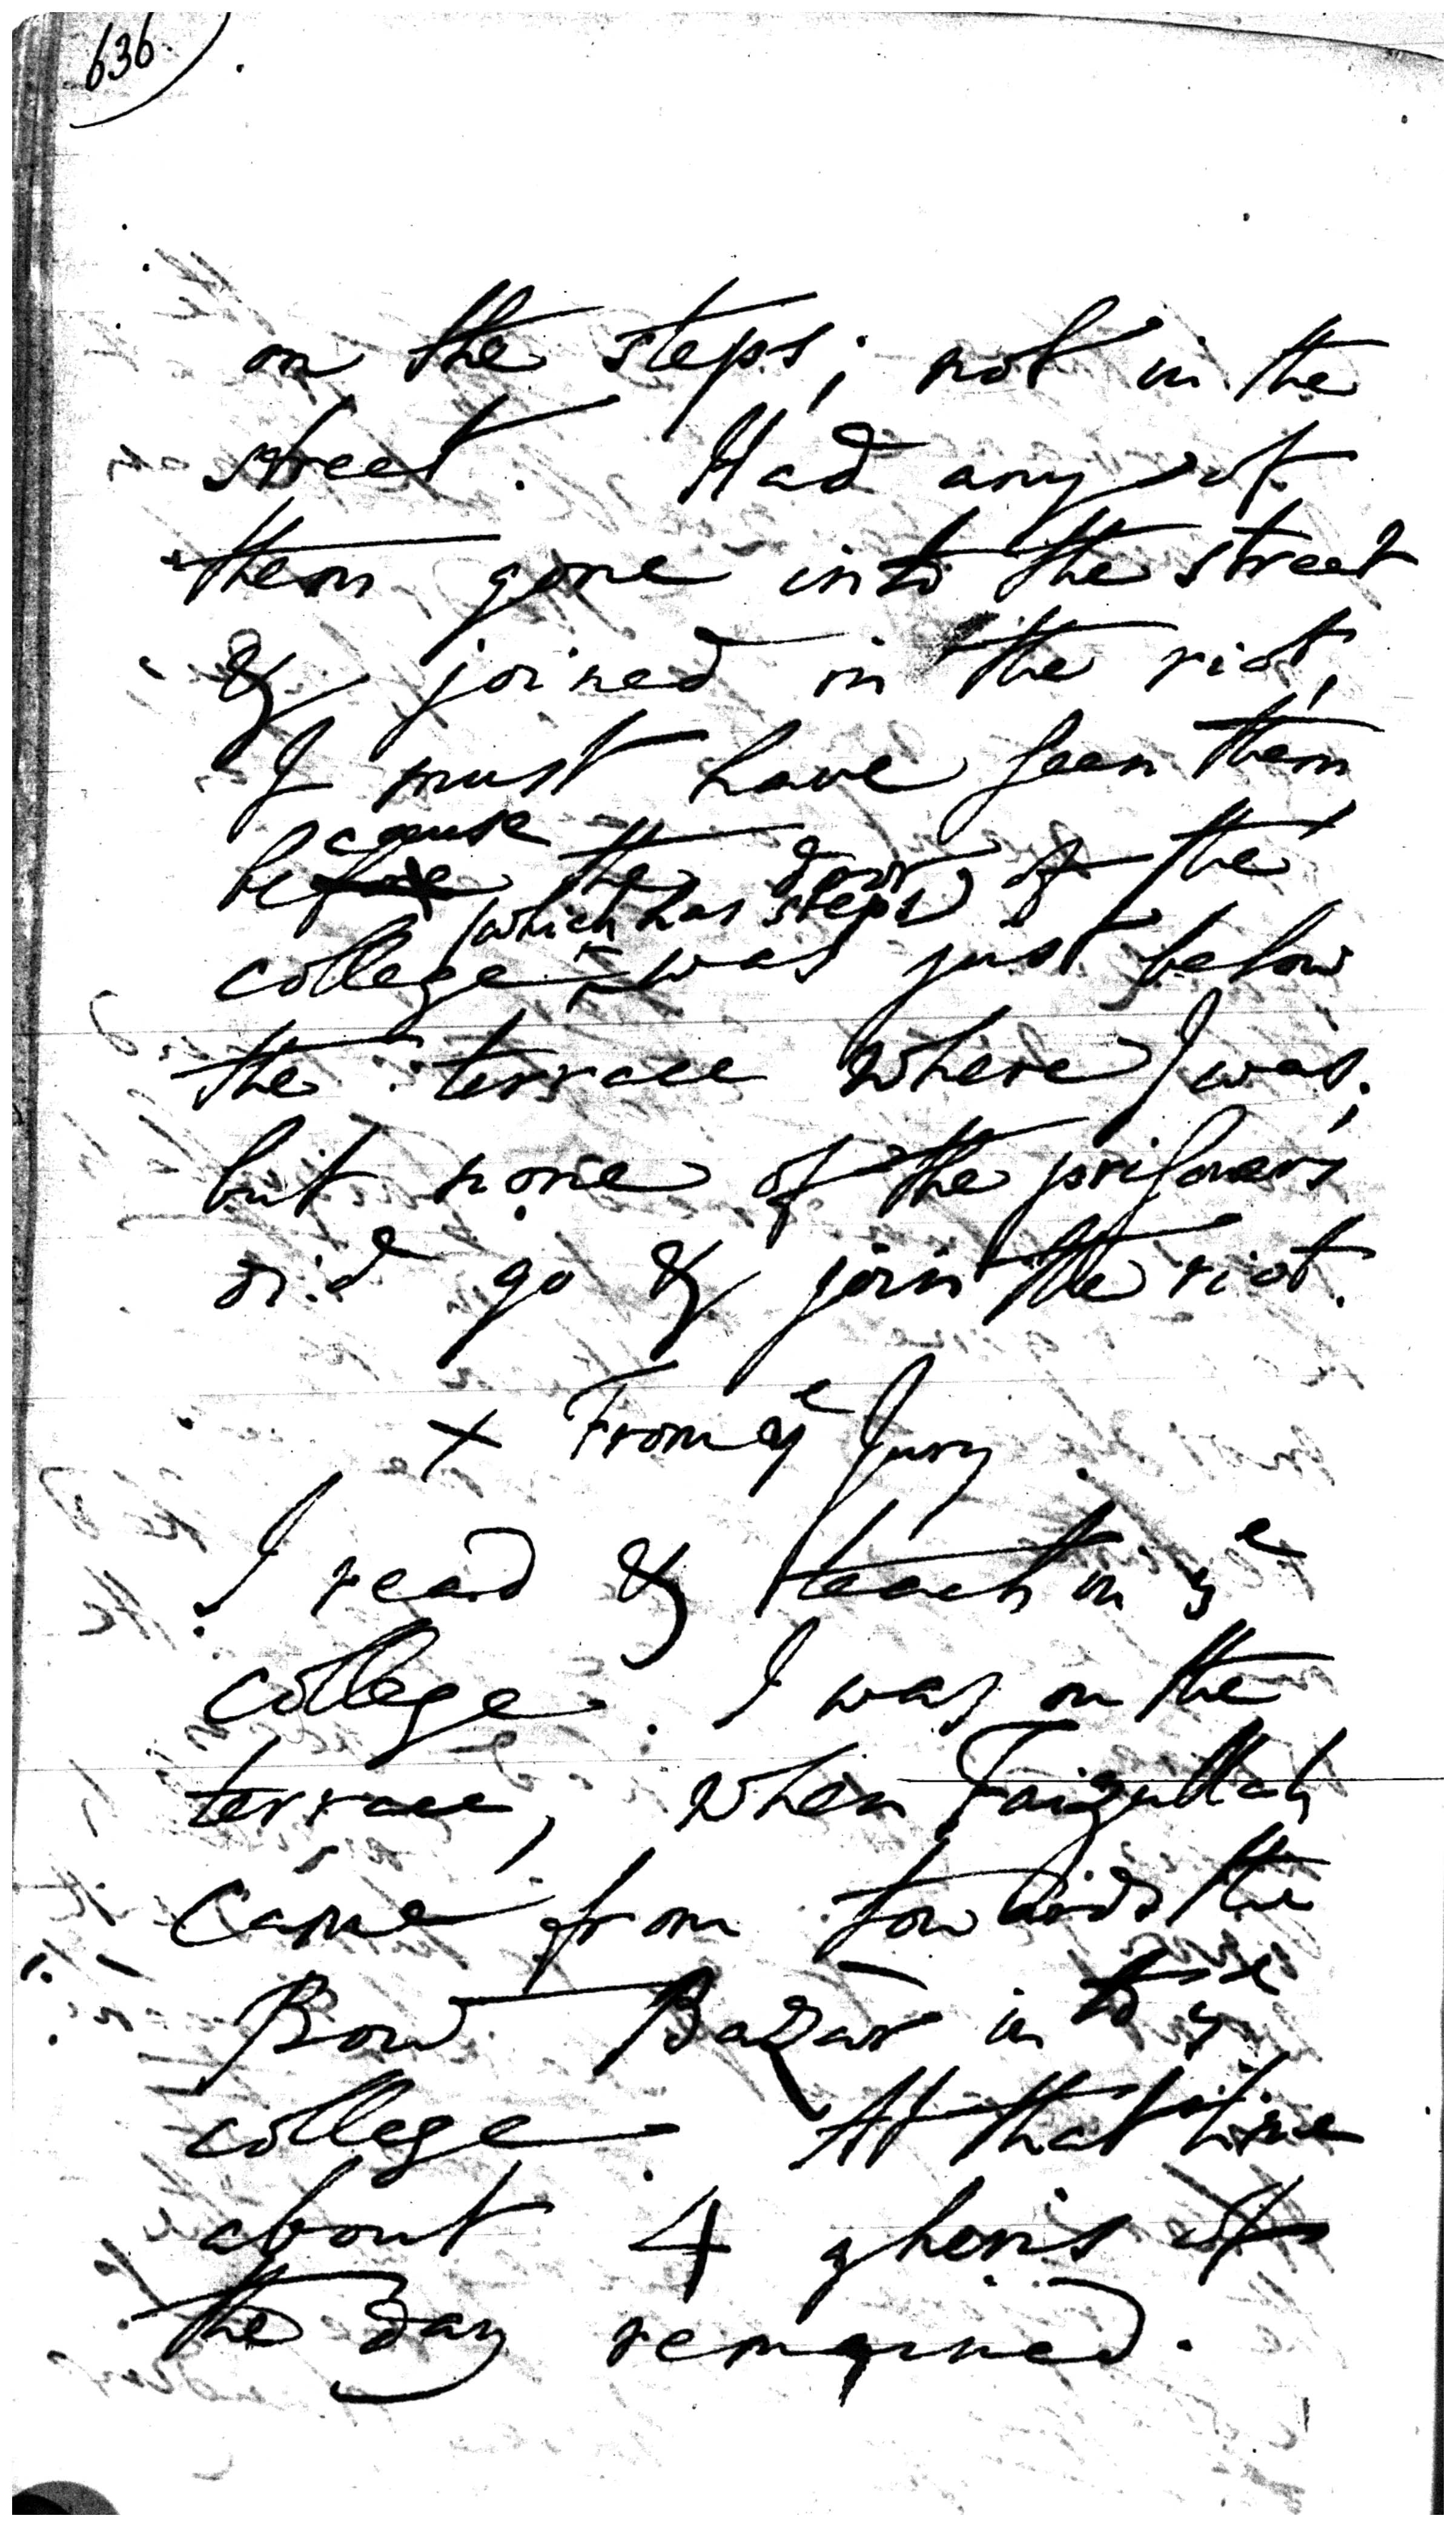 636
on the steps; not in the
street. Had any of
them gone into the street
& joined in the riot,
I must have seen them
because
before the door of the
(which has steps)
college was just below
the terrace where I was;
but none of the prisoners
did go & join the riot.
x From ye Jury
I read & teach in ye
college. I was on the
terrace, when Faizullah
came from towards the
Bow Bazar into ye
college. At that time
about 4 gheris of
the day remained.